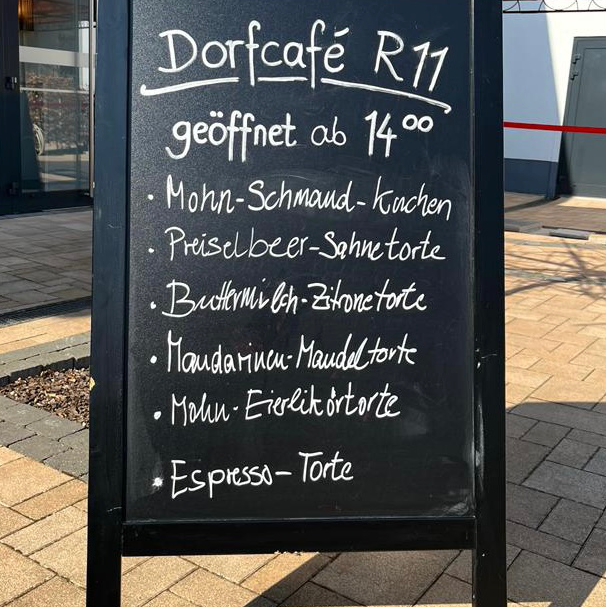 Dorfcafé R11
geöffnet ab 14⁰⁰
· Mohn-Schmand-Kuchen
· Preiselbeer-Sahnetorte
· Buttermilch-Zitronetorte
· Mandarinen-Mandeltorte
· Mohn-Eierlikörtorte
· Espresso-Torte